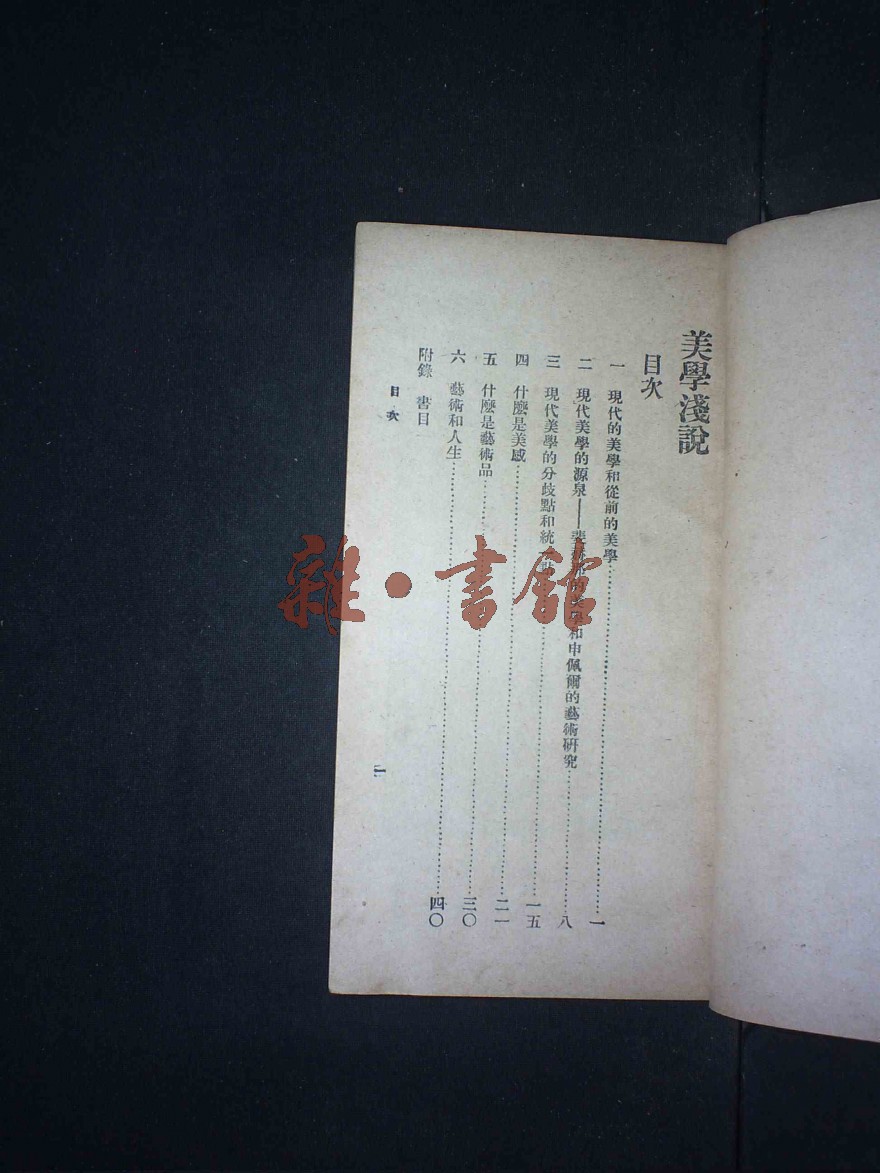 美學淺說
目次
一 現代的美學和從前的美學……一
二 現代美學的源泉——的美學和申佩爾的藝術研究……八
三 現代美學的分歧點和統一點……一五
四 什麼是美感……二一
五 什麼是藝術品……三〇
六 藝術和人生……四〇
附錄 書目
目次
一
雜·書館